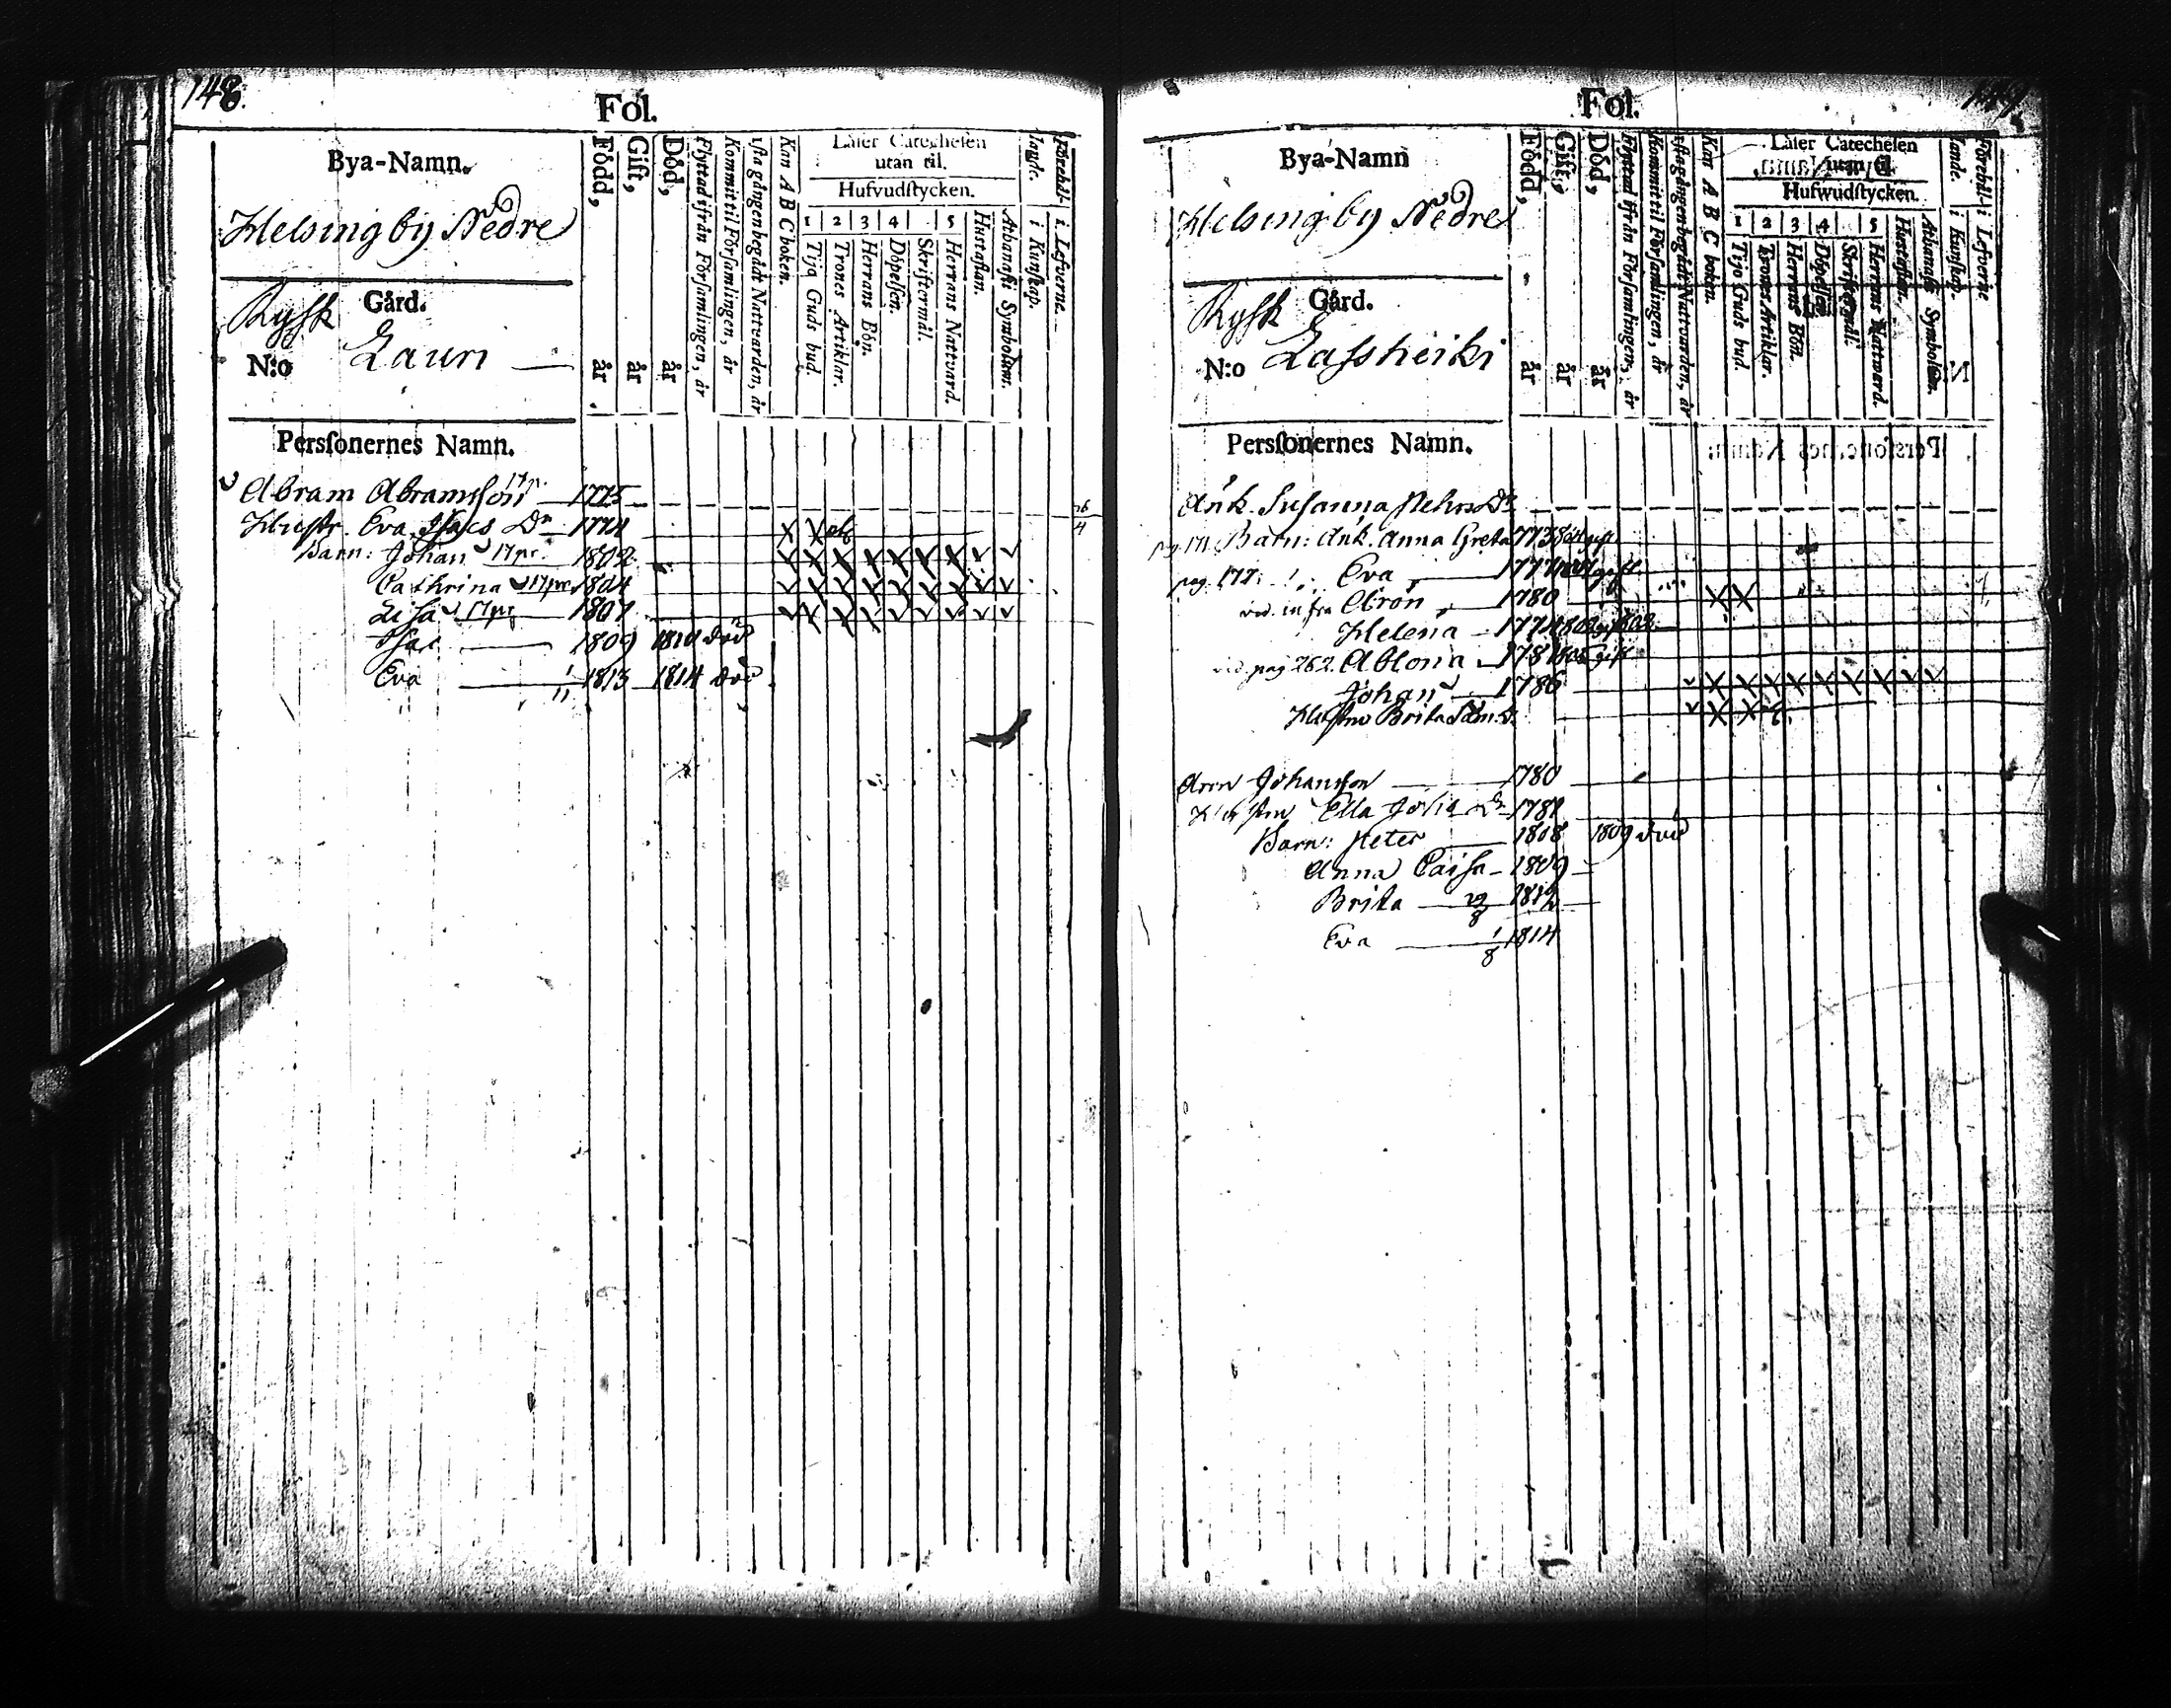 148.
Fol.
Bya-Namn.
Helsingby Nedre
Gård.
Rysk
N:o Lauri
Persſonernes Namn.
Född, år
Gift, år
Död, år
Flyttad ifrån Församlingen, år
Kommit til Församlingen, år
1sta gången begådt Nattvarden, år
Kan A B C boken.
Låser Catechesen
utan til.
Hufvudſtycken.
1 2 3 4 5
Tijo Guds bud.
Trones Artiklar.
Herrans Bön.
Döpelſen.
Skriftermål.
Herrans Nattvard.
Huſtaflan.
Athanaſii Symbolum.
Förehållande.
i Kunſkap.
i Lefverne
Abram Abramsson 1775
Hustr. Eva Isacs Dr 1774
Barn: Johan 17pr. 1802
Cathrina 17pr 1804
Lisa 17pr 1807
Isac 1809 1810 död
Eva 1/11 1813 1814 död
149
Fol.
Bya-Namn
Helsingby Nedre
Gård.
Rysk
N:o Lassheiki
Persſonernes Namn.
Född, år
Gift, år
Död, år
Flyttad ifrån Församlingen, år
Kommit til Församlingen, år
1sta gången begådt Nattvarden, år
Kan A B C boken.
Låser Catechesen
utan til.
Hufwudſtycken.
1 2 3 4 5
Tijo Guds bud.
Trones Artiklar.
Herrans Bön.
Döpelſen.
Skriftermål.
Herrans Nattward.
Huſtaflan.
Athanaſii Symbolum.
Förehållande.
i Kunſkap.
i Lefverne
Änk. Susanna Pehrs Dr
Barn: Änk. Anna Greta 1773 gift
pag. 177. Eva 1777 gift
vid. infra Aron 1780
Helena 1774 1802 gift
vid. pag 262. Ablona 1781 1805 gift
Johan 1786
Hustru Brita
Aron Johansson 1780
Hustru Ella Josia Dr 1781
Barn: Peter 1808 1809 död
Anna Caisa 1809
Brita 29/8 1812
Eva 1/8 1814